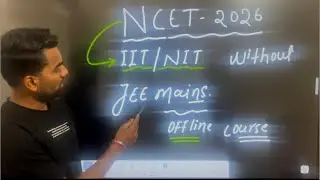 NCET-2026
IIT/NIT without
JEE mains.
OFFline course